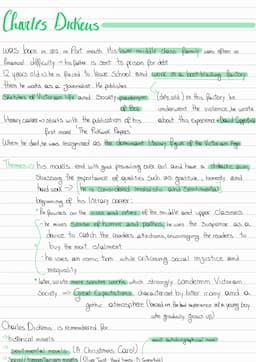 Charles Dickens
was born in 1812 in Portsmouth. His lower-middle class family was often in
financial difficulty → his father is sent to prison for debt
12 years old → he is forced to leave School and work in a boot-blacking factory
then he works as a journalist. He publishes
Sketches of Victorian life and Society → pseudonym of Boz
(detested) in this factory he
underwent the violence, he wrote
about this experience → David Copperfield
literary career → starts with the publication of his
first novel "The Pickwick Papers"
When he died he was recognised as the dominant literary figure of the Victorian Age
Themes: his novels end with good prevailing over evil and have a didactic aim,
stressing the importance of qualities such as gratitude, honesty and
hard work → he is considered moralistic and Sentimental
beginning of his literary career:
• he focuses on the vices and virtues of the middle and upper classes
- he mixes sense of humour and pathos, he uses the suspense as a
device to catch the readers attention, encouraging the readers to
buy the next instalment
- he uses an ironic tone while criticising social injustice and
inequality
• later, wrote more sombre works which strongly condemn Victorian
Society → Great Expectations, characterised by bitter irony and a
gothic atmosphere (based on the bad experience of a young boy
who gradually grows up)
Charles Dickens is remembered for:
• historical novels
most autobiographical novel
• sentimental novels (A Christmas Carol)
• Social/humanitarian novels (Oliver Twist, Hard Times, D. Copperfield)